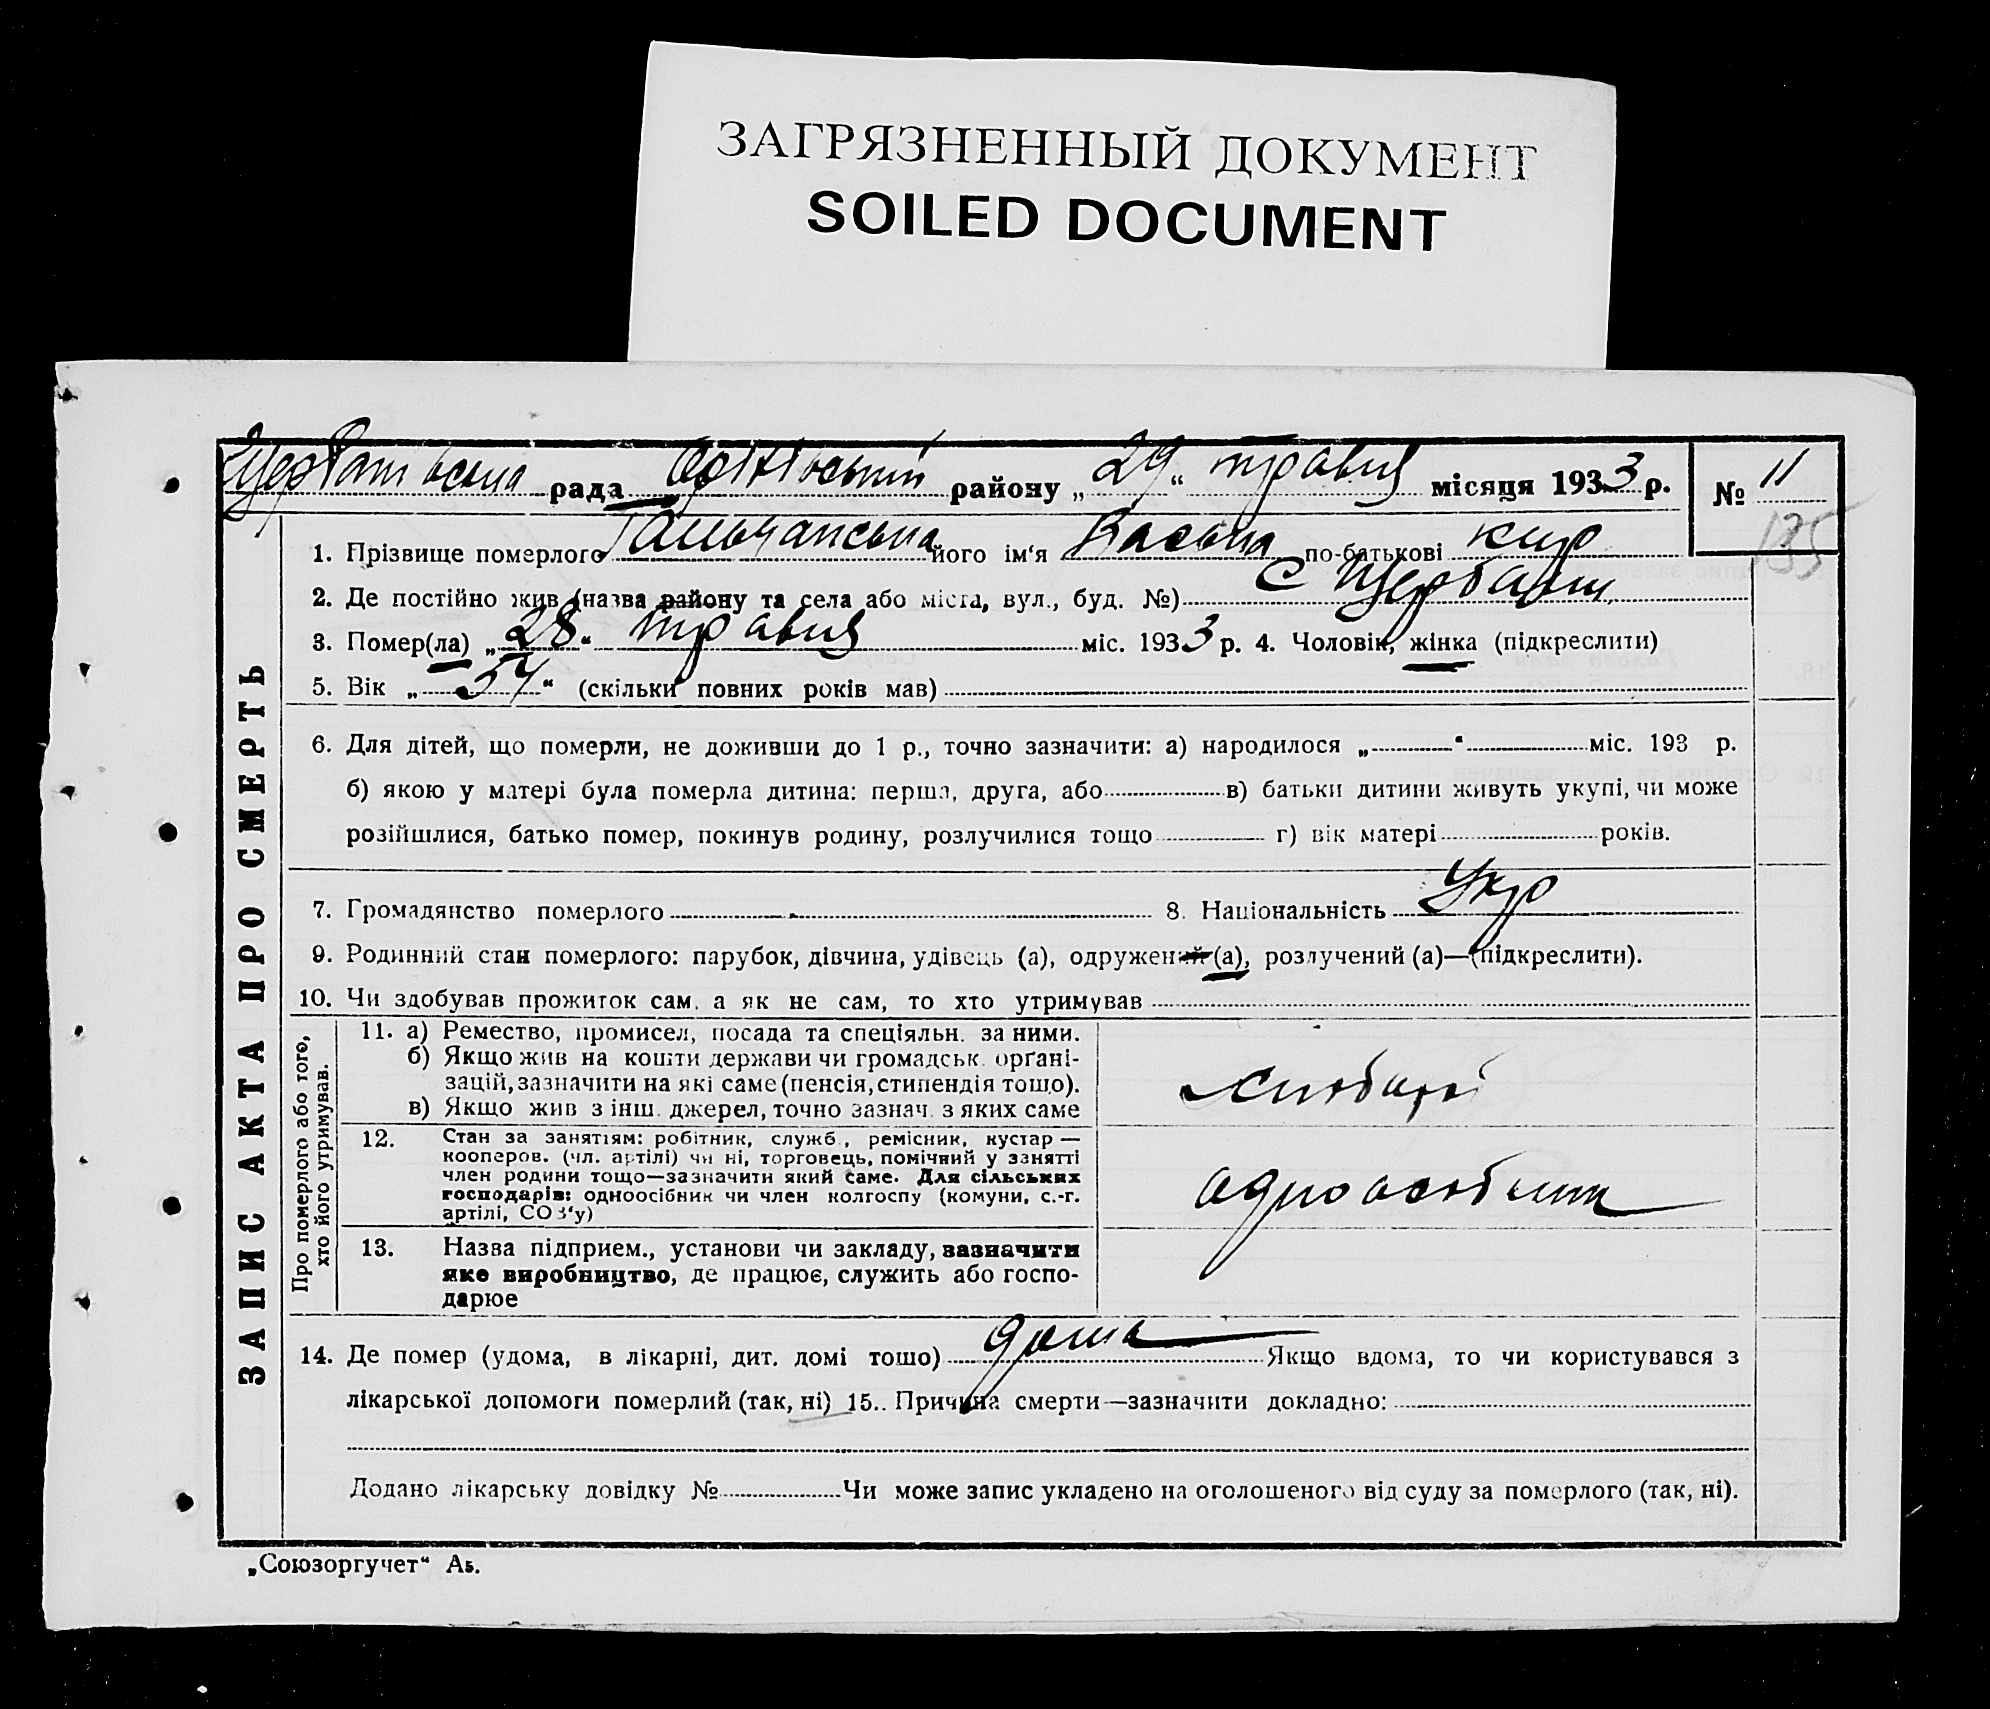 ЗАГРЯЗНЕННЫЙ ДОКУМЕНТ
SOILED DOCUMENT
рада району „29“ травня місяця 1933 р. № 11
135
1. Прізвище померлого Гальчанська його ім‘я по-батькові Кир
2. Де постійно жив (назва району та села або міста, вул., буд. №) с Щербані
3. Помер(ла) „28“ травня міс. 1933 р. 4. Чоловік, жінка (підкреслити)
5. Вік „ “ (скільки повних років мав)
6. Для дітей, що померли, не доживши до 1 р., точно зазначити: а) народилося „ “ міс. 193 р.
б) якою у матері була померла дитина: перша, друга, або в) батьки дитини живуть укупі, чи може
розійшлися, батько помер, покинув родину, розлучилися тощо г) вік матері років.
7. Громадянство померлого 8. Національність Укр
9. Родинний стан померлого: парубок, дівчина, удівець (а), одружений (а), розлучений (а)—(підкреслити).
10. Чи здобував прожиток сам, а як не сам, то хто утримував
ЗАПИС АКТА ПРО СМЕРТЬ
Про померлого або того,
хто його утримував.
11. а) Ремество, промисел, посада та спеціяльн. за ними.
б) Якщо жив на кошти держави чи громадськ. орґані-
зацій, зазначити на які саме (пенсія, стипендія тощо).
в) Якщо жив з інш. джерел, точно зазнач. з яких саме
12. Стан за заняттям: робітник, служб., ремісник, кустар —
кооперов. (чл. артілі) чи ні, торговець, помічний у занятті
член родини тощо—зазначити який саме. Для сільських
господарів: одноосібник чи член колгоспу (комуни, с.-г.
артілі, СОЗ‘у)
одноособник
13. Назва підприєм., установи чи закладу, зазначити
яке виробництво, де працює, служить або госпо-
дарює
14. Де помер (удома, в лікарні, дит. домі тощо) дома Якщо вдома, то чи користувався з
лікарської допомоги померлий (так, ні) 15.. Причина смерти—зазначити докладно:
Додано лікарську довідку № Чи може запис укладено на оголошеного від суду за померлого (так, ні).
„Союзоргучет“ Аз.